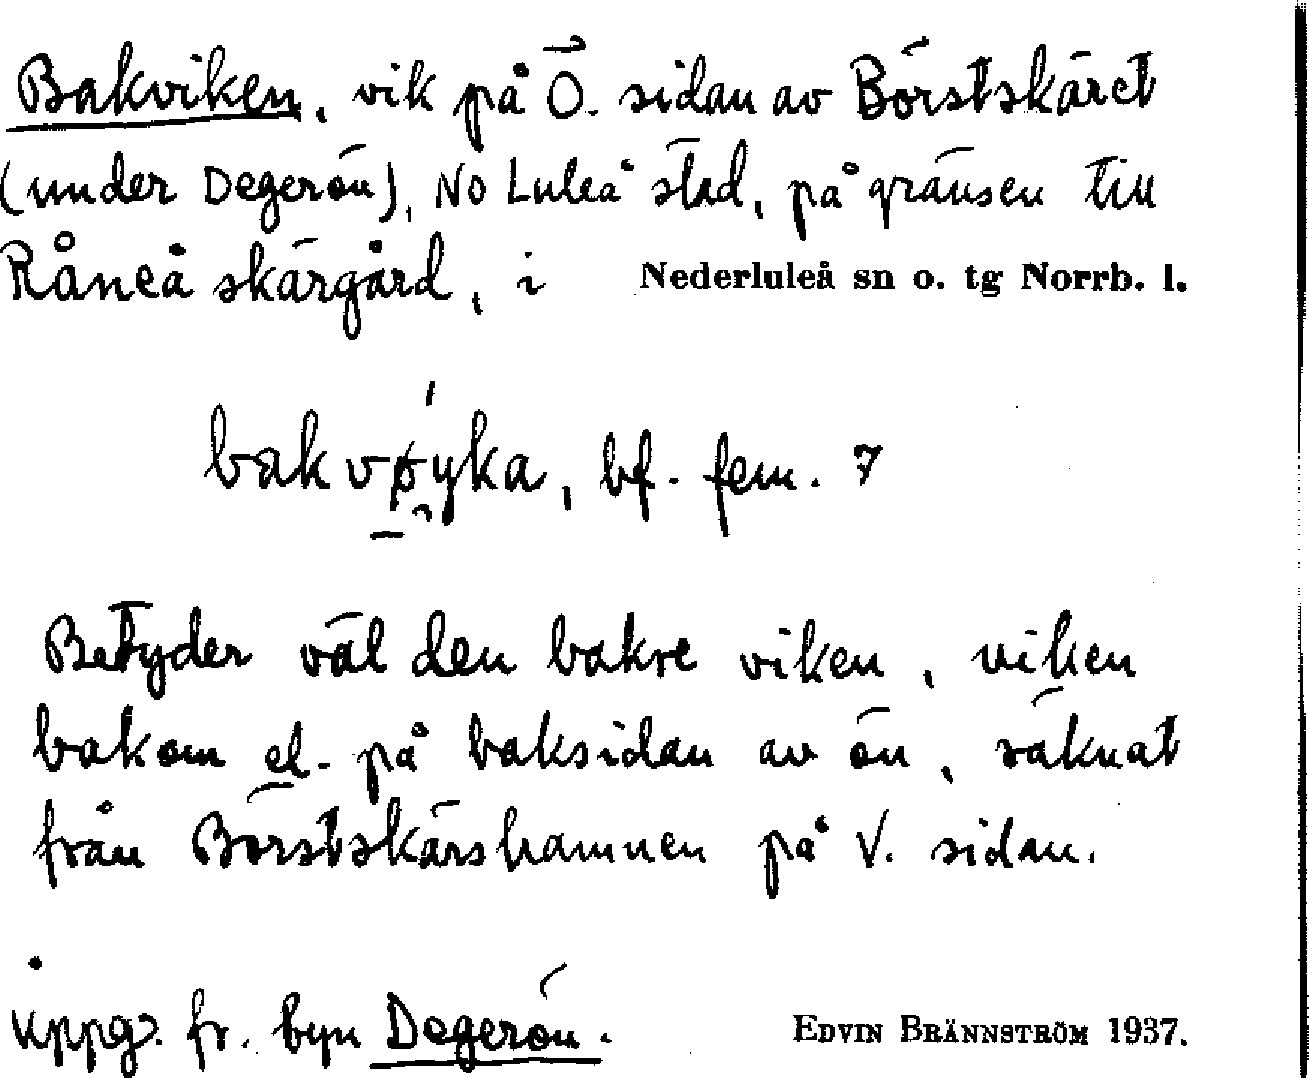 Bakviken, vik på Ö. sidan av Börstskäret
(under Degerön), NO Luleå stad, på gränsen till
Råneå skärgård, i Nederluleå sn o. tg Norrb. l.
bakvøyka, bf. fem. 7
Betyder väl den bakre viken, viken
bakom el. på baksidan av ön, räknat
från Börstskärshamnen på V. sidan.
Uppg. fr. byn Degerön. EDVIN BRÄNNSTRÖM 1937.